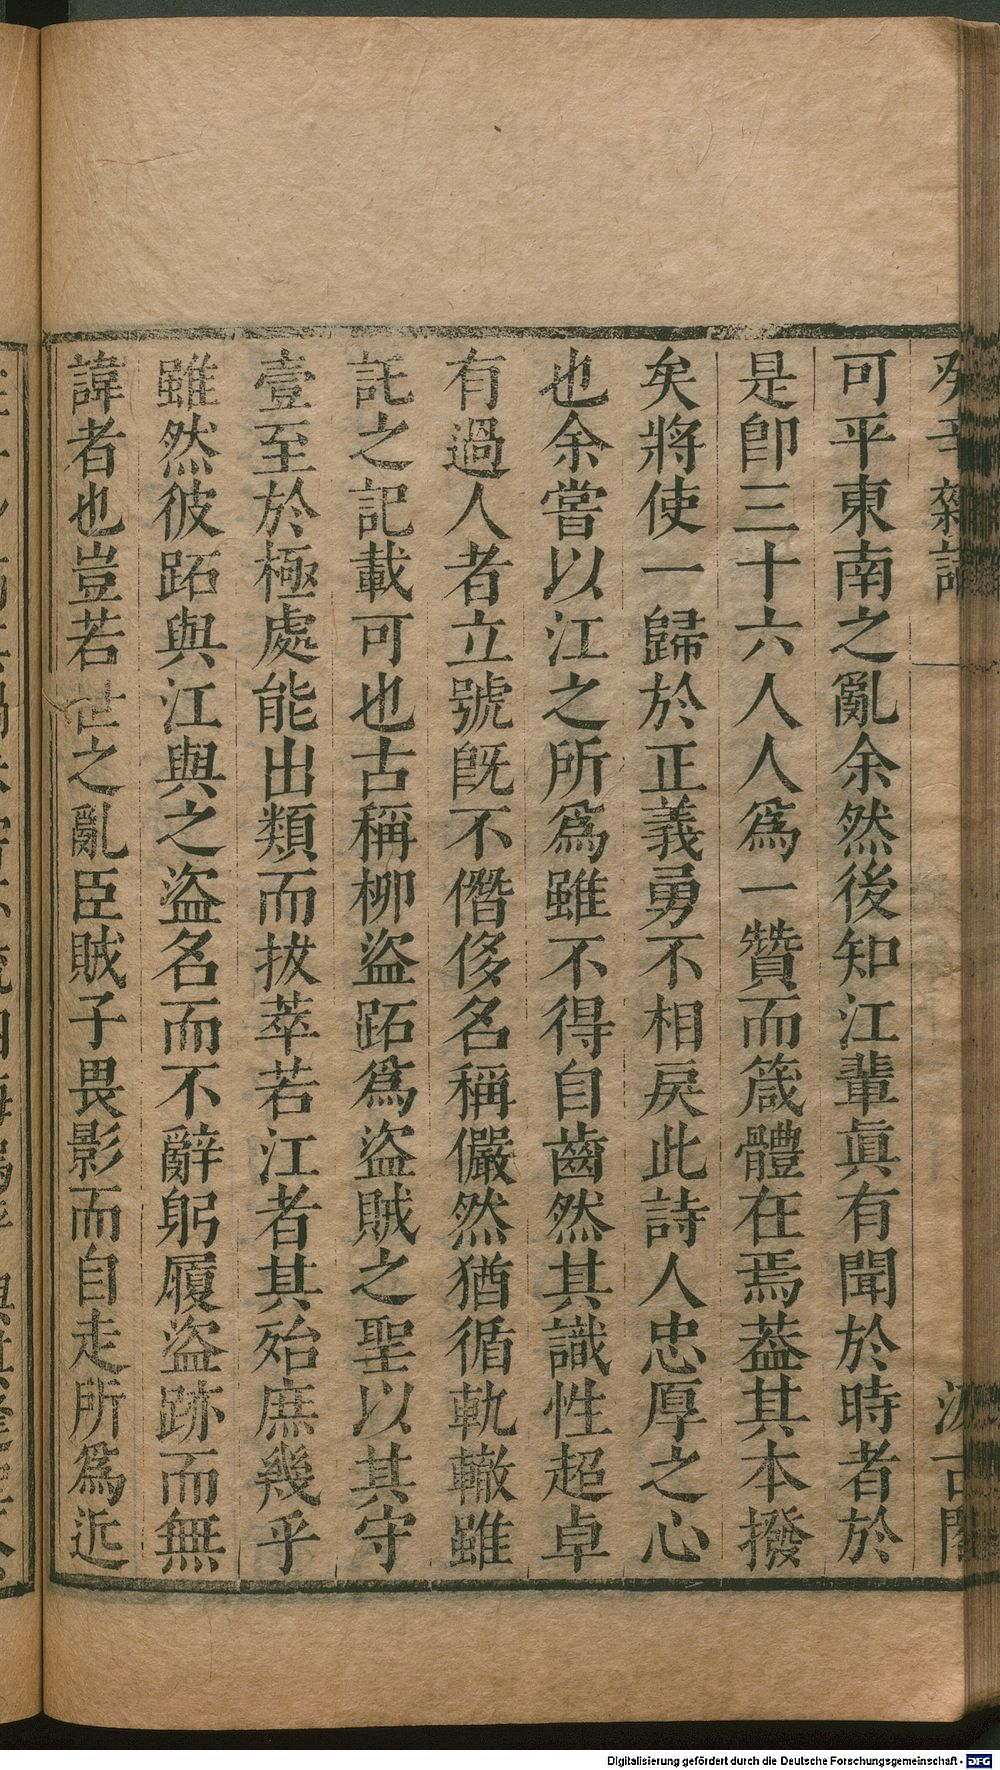 癸辛雜識
汲古閣
可平東南之亂余然後知江輩眞有聞於時者於
是卽三十六人人爲一贊而箴體在焉葢其本撥
矣將使一歸於正義勇不相戾此詩人忠厚之心
也余嘗以江之所爲雖不得自齒然其識性超卓
有過人者立號旣不僭侈名稱儼然猶循軌轍雖
託之記載可也古稱柳盜跖爲盜賊之聖以其守
壹至於極處能出類而拔萃若江者其殆庶幾乎
雖然彼跖與江與之盜名而不辭躬履盜跡而無
諱者也豈若世之亂臣賊子畏影而自走所爲近
Digitalisierung gefördert durch die Deutsche Forschungsgemeinschaft - DFG